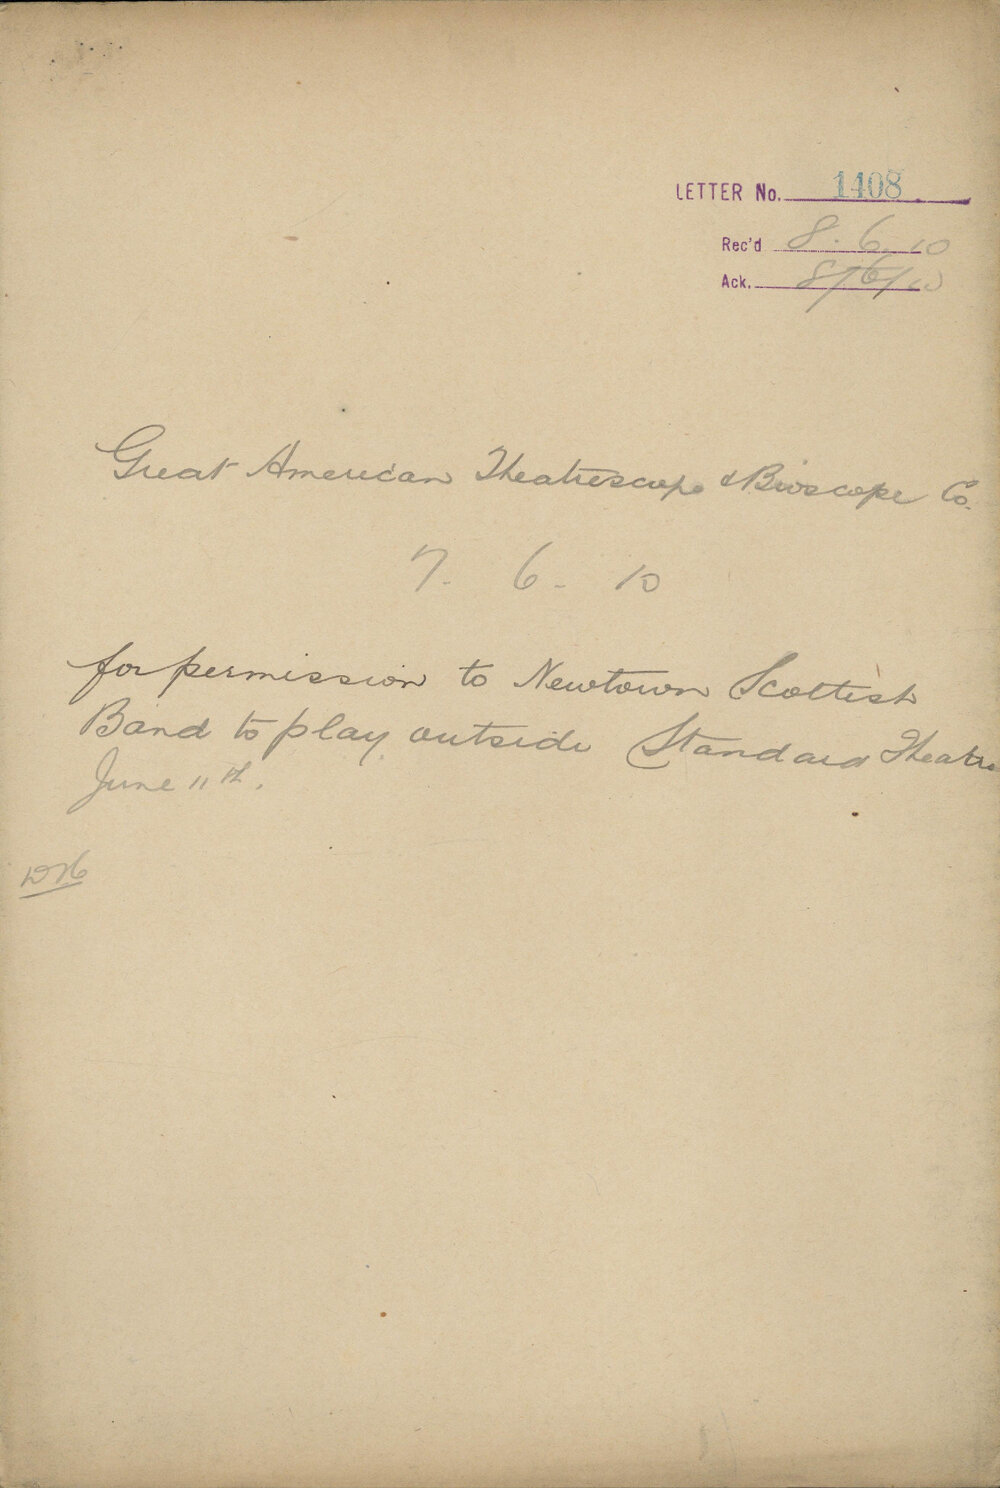 LETTER No. 1408
Rec'd 8.6.10
Ack. 8/6/10
Great American Theatrescope & Bioscope Co.
7. 6. 10
for permission to Newtown Scottish
Band to play outside Standard Theatre
June 11th.